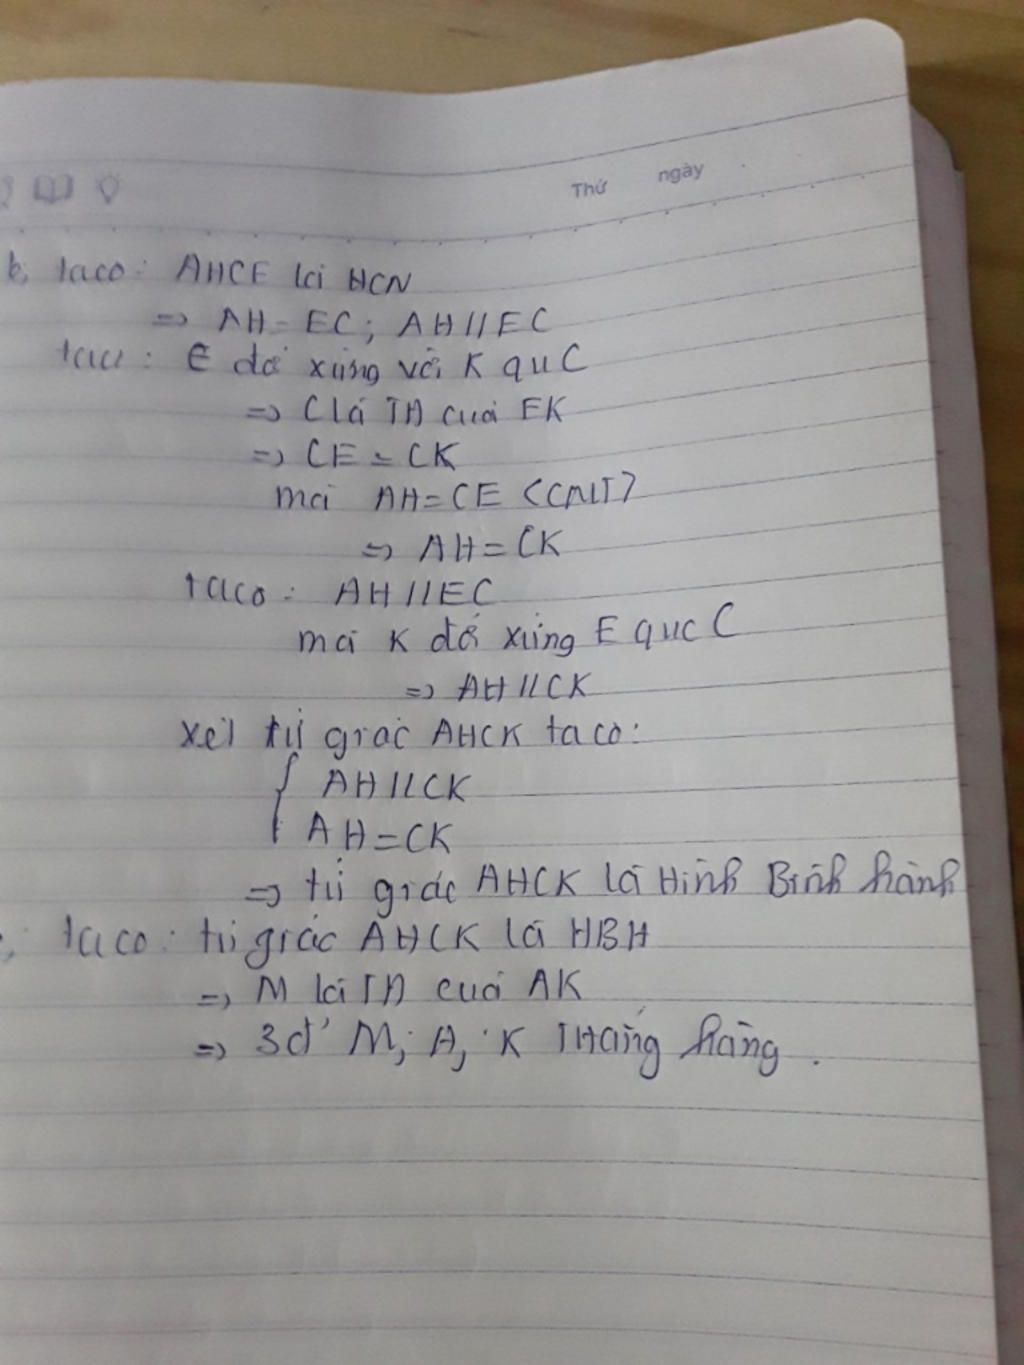 Thứ ngày
b, ta có: AHCE là HCN
=> AH = EC; AH // EC
ta có: E đối xứng với K qua C
=> C là TĐ của EK
=> CE = CK
mà AH = CE (CMT)
=> AH = CK
ta có: AH // EC
mà K đối xứng E qua C
=> AH // CK
xét tứ giác AHCK ta có:
{ AH // CK
AH = CK
=> tứ giác AHCK là Hình Bình hành
, ta có: tứ giác AHCK là HBH
=> M là TĐ của AK
=> 3đ' M, A, K THẳng hàng.